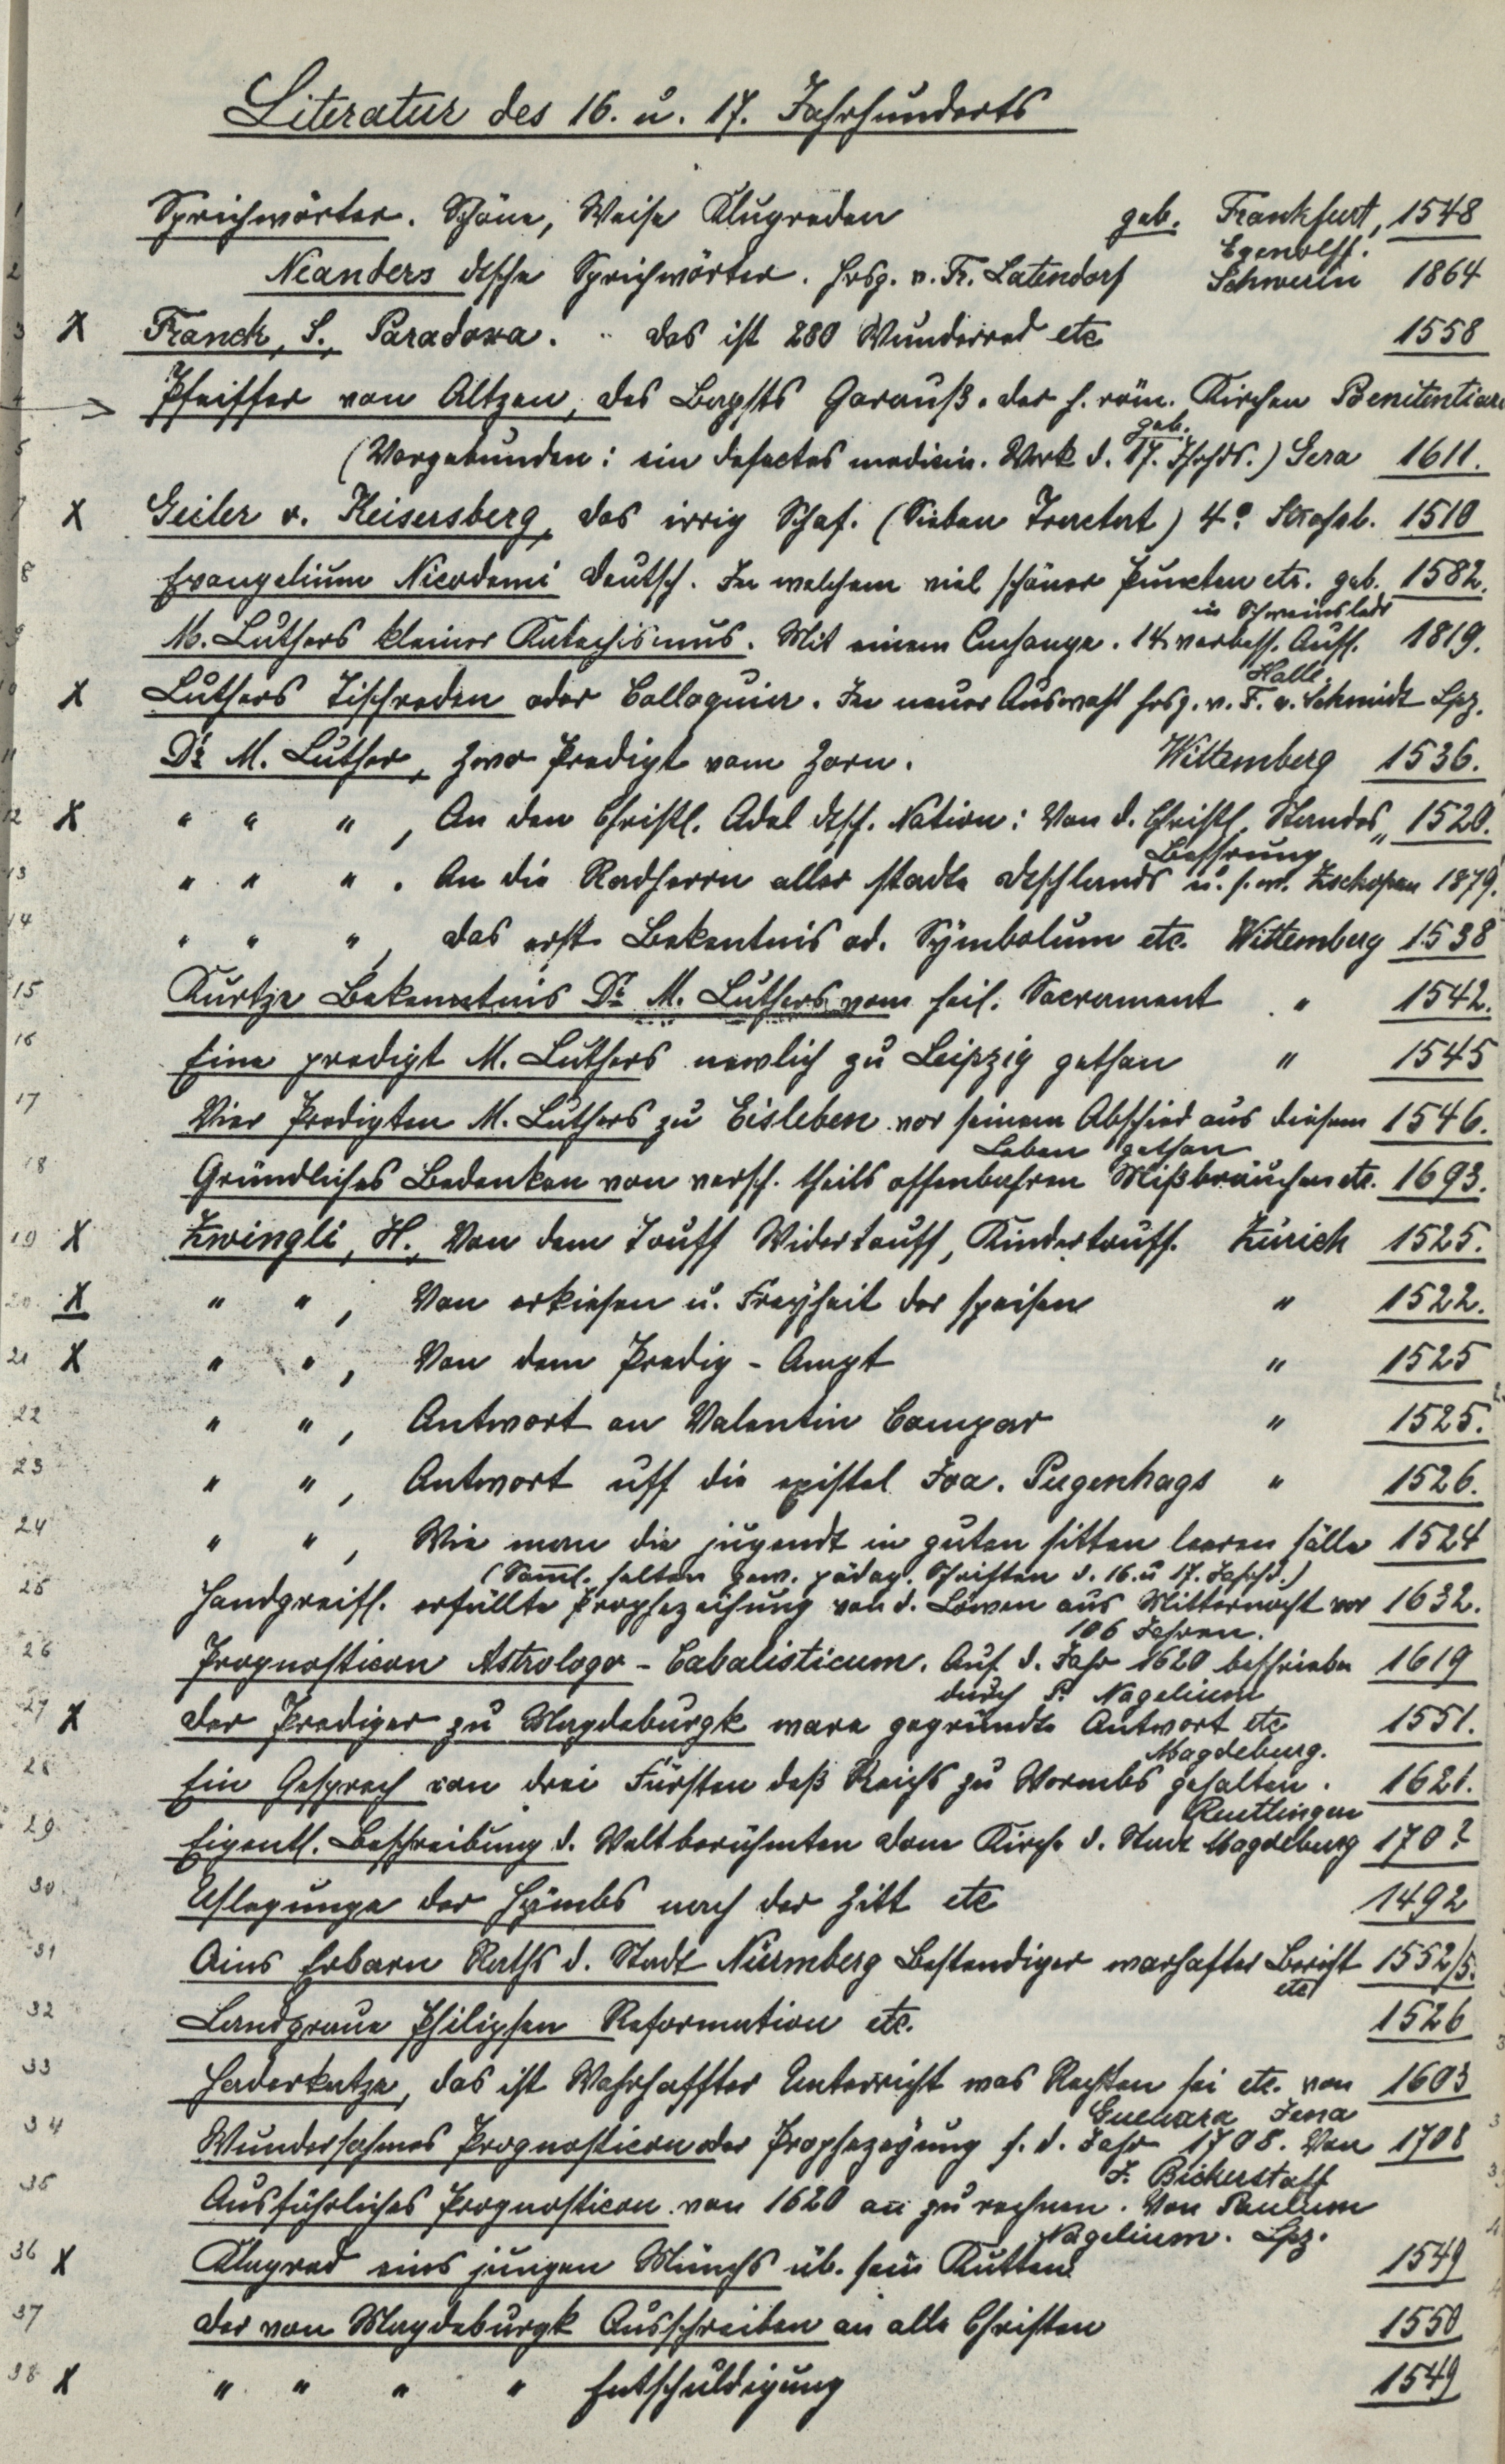 Literatur des 16. u. 17. Jahrhunderts
1 Sprichwörter. Schöne, Weise Klugreden geb. Frankfurt, 1548
Egenolff.
2 Neanders dtsche Sprichwörter. hrsg. v. Fr. Latendorf Schwerin 1864
3 X Franck, S., Paradoxa. " das ist 280 Wunderred etc 1558
4 Pfeiffer von Altzen, des Bapsts Garauß. der h. röm. Kirchen Poenitentiari
geb.
5 (Vorgebunden: ein defectes medicin. Werk d. 17. Jhrhdts.) Gera 1611.
7 X Geiler v. Keisersberg, das irrig Schaf. (Sieben Tractat) 4º. Strassb. 1510
8 Evangelium Nicodemi deutsch. In welchem viel schöner Puncten etc. geb. 1582.
in Schweinsledr
9 M. Luthers kleiner Katechismus. Mit einem Anhange. 14. verbess. Aufl. 1819.
Halle.
10 X Luthers Tischreden oder Colloquia. In neuer Auswahl hrsg. v. F. v. Schmidt Lpz.
11 Dr. M. Luther, Zwo Predigt vom Zorn. Wittemberg 1536.
12 X " " " , An den Christl. Adel dtsch. Nation: Von d. Christl. Standes " 1520.
Bessrung
13 " " " . An die Radherrn aller stadte dtschlands u. s. w. Zschopau 1879.
14 " " " , das erste Bekentnis od. Symbolum etc. Wittemberg 1538
15 Kurtze Bekenntnis Dr. M. Luthers vom heil. Sacrament " 1542.
16 Eine predigt M. Luthers newlich zu Leipzig gethan " 1545
17 Vier Predigten M. Luthers zu Eisleben vor seinem Abschied aus diesem 1546.
Leben gethan
18 Gründliches Bedenken von versch. theils offenbahren Mißbräuchen etc. 1693.
19 X Zwingli, H., Von dem Touff Widertouff, Kindertouff. Zürich 1525.
20 X " " , Von erkiesen u. Freyheit der speisen " 1522.
21 X " " , Von dem Predig-Ampt " 1525
22 " " , Antwort an Valentin Compar " 1525.
23 " " , Antwort uff die epistel Joa. Pugenhags " 1526.
24 " " , Wie man die jugendt in guten sitten leeren sölle 1524
(Saml. selten gew. pädag. Schriften d. 16. u 17. Jahrhd.)
25 Handgreifl. erfüllte Prophezeihung von d. Löwen aus Mitternacht vor 1632.
106 Jahren.
26 Prognosticon Astrologo-Cabalisticum. Auf d. Jahr 1620 beschrieben 1619
durch P. Nagelium
27 X der Prediger zu Magdeburgk ware gegründte Antwort etc 1551.
Magdeburg.
28 Ein Gesprech von drei Fürsten deß Reichs zu Wormbs gehalten. 1621.
Ruettlingen
29 Eigentl. Beschreibung d. Weltberühmten Dom Kirche d. Stadt Magdeburg 170?
30 Uslegunge der Hÿmbs nach der Zitt etc 1492
31 Ains Erbarn Raths d. Stadt Nürmberg Bestendiger warhafter Bericht 1552/5.
etc
32 Landgraue Philipsen Reformation etc. 1526
33 Haderkatze, das ist Wahrhaffter Unterricht was Rechten sei etc. von 1603
Gueuara Jena
34 Wundersahmes Prognosticon oder Prophezeyung f. d. Jahr 1708. Von 1708
J. Bickerstaff
35 Ausführliches Prognosticon von 1620 an zu rechnen. Von Paulum
Nagelium. Lpz.
36 X Klagred eins jungen Münchs üb. sein Kutten 1549
37 der von Magdeburgk Ausschreiben an alle Christen 1550
38 X " " " " Entschuldigung 1549